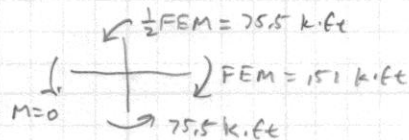 ½FEM = 75.5 k.ft
FEM = 151 k.ft
M=0
75.5 k.ft